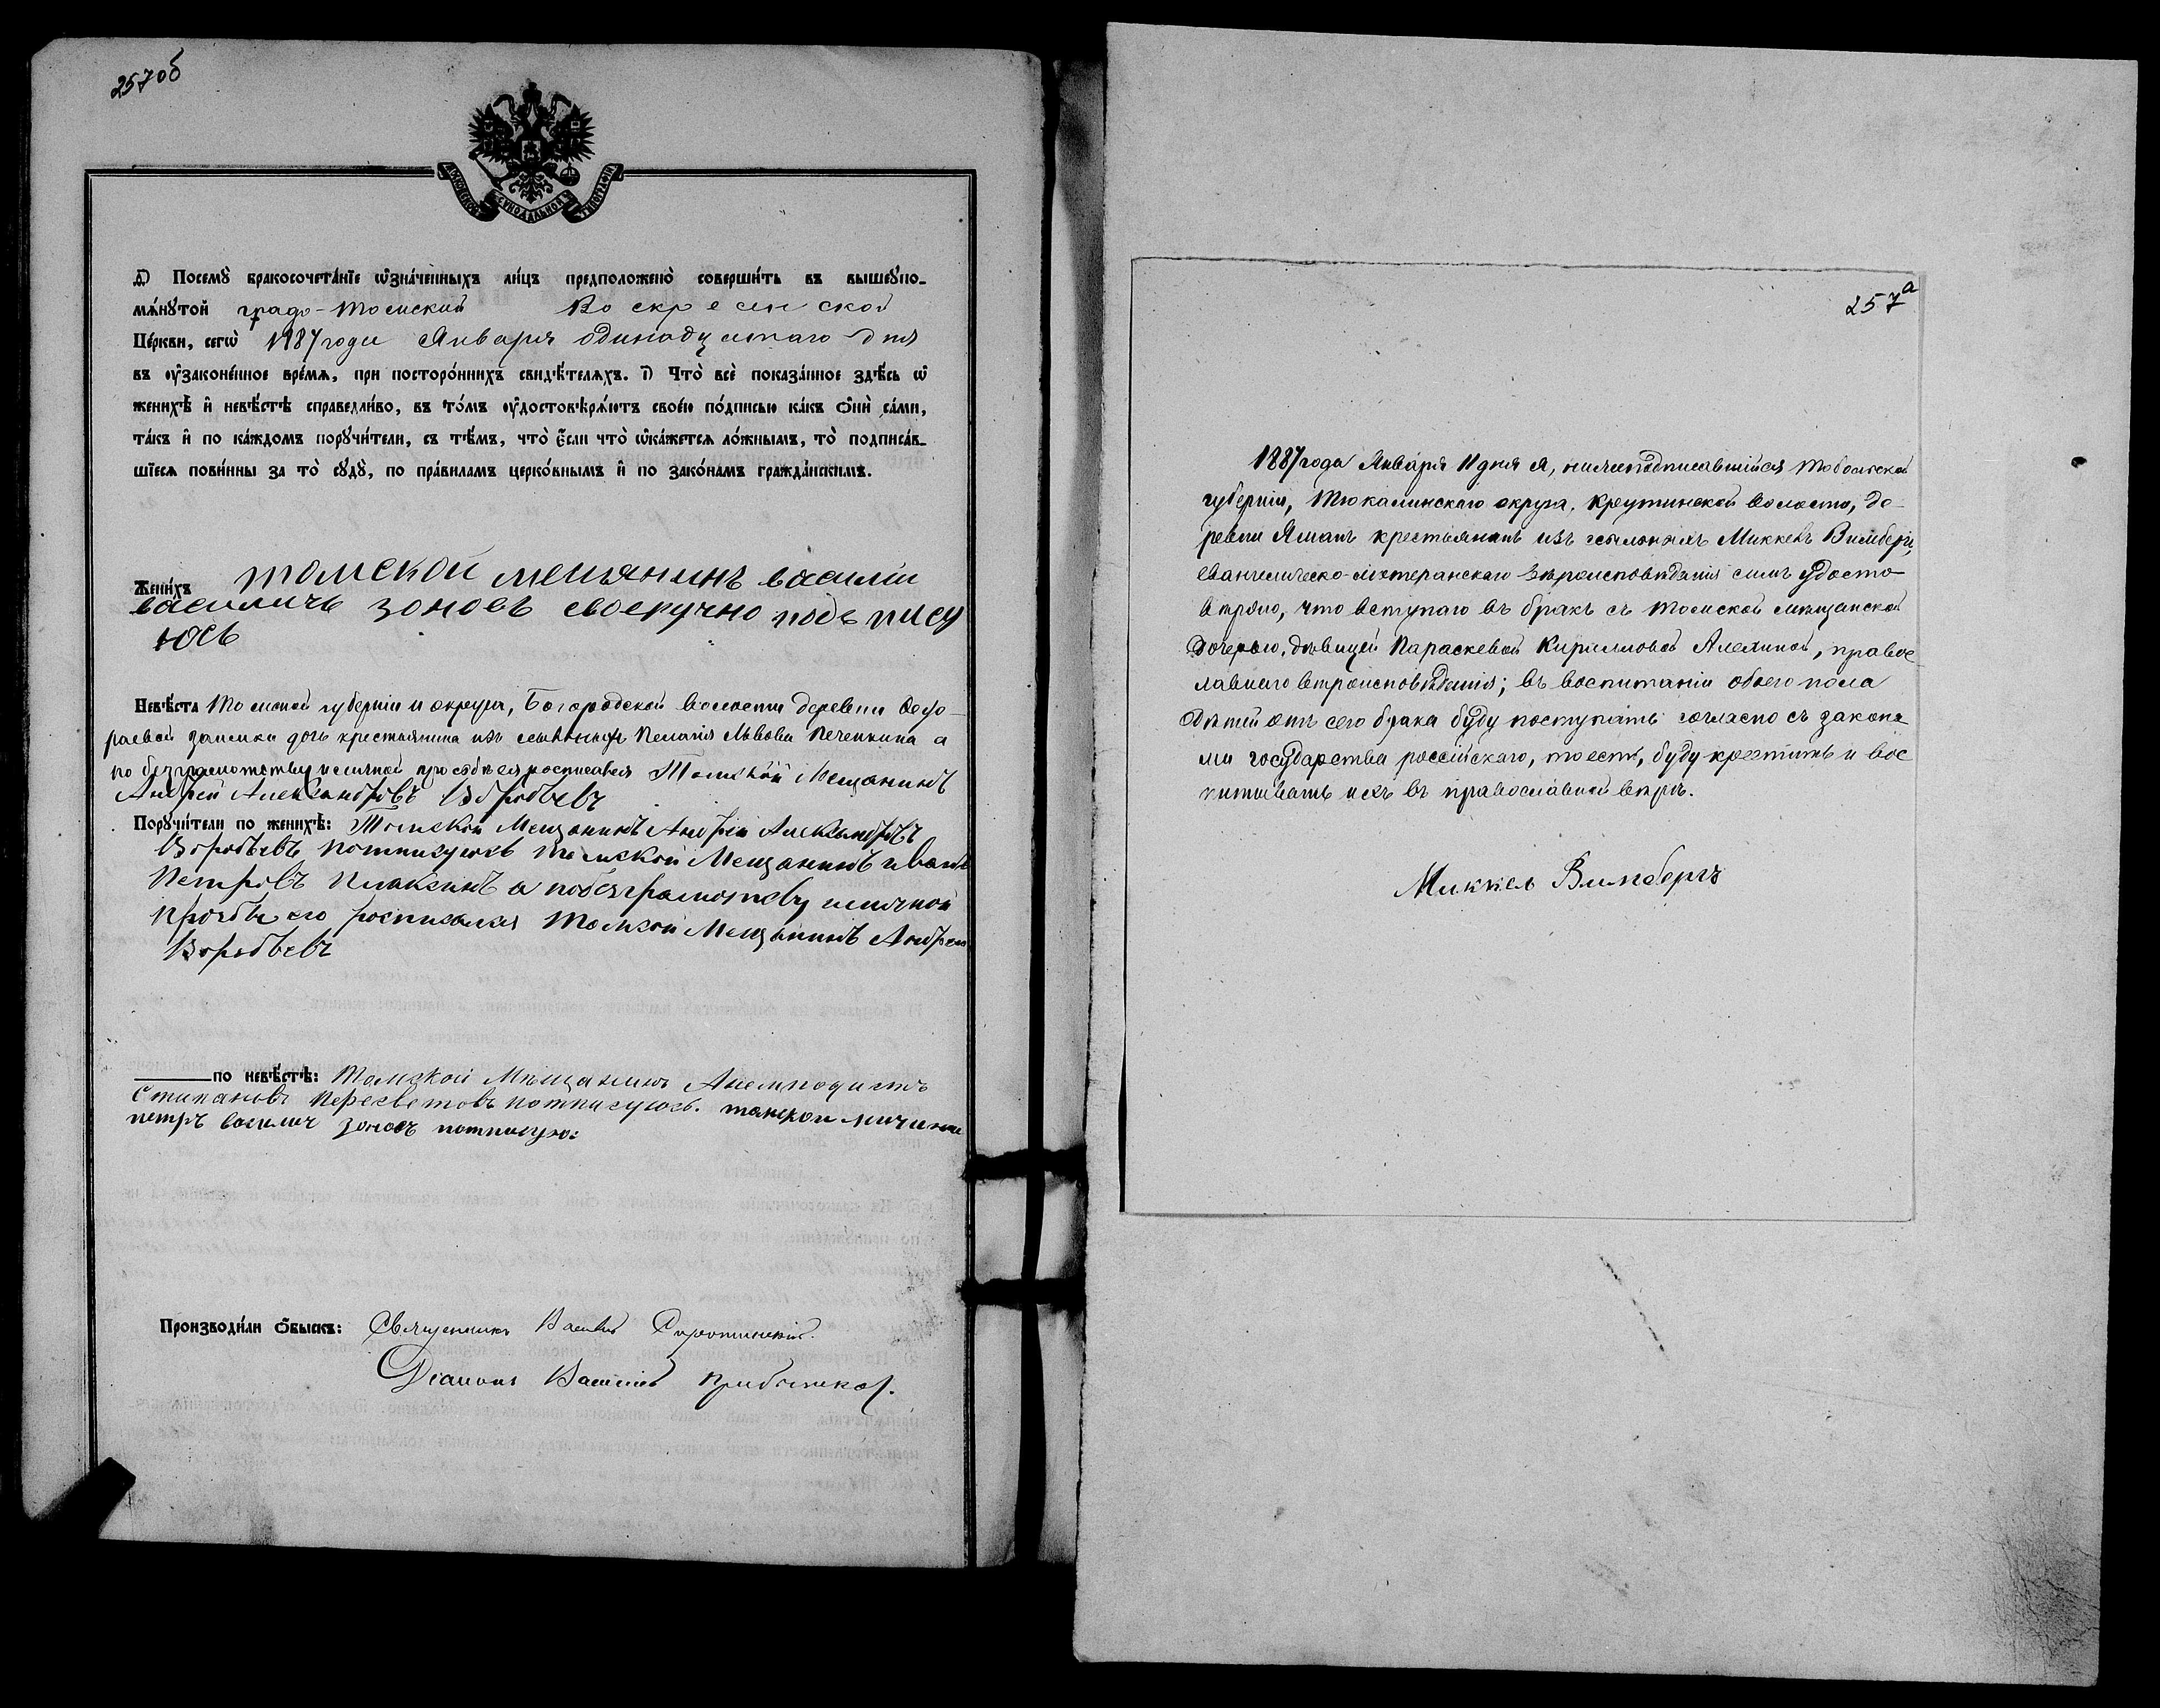 257об
МОСКОВСКОЙ СѴНОДАЛЬНОЙ ТѴПОГРАФІИ
Посемꙋ̀ бракосочета́нїе ѡ҆зна́ченныхъ ли́цъ предположено̀ соверши́ть въ вышеꙋпо-
мѧ́нꙋтой градо-Томский Воскресенской
Це́ркви, сегѡ̀ 1887 года Января одинадцатаго дня
въ ᲂу҆законе́нное вре́мѧ, при посторо́ннихъ свидѣ́телѧхъ. І҃) Что̀ всѐ пока́занное здѣ́сь ѡ҆
женихѣ̀ и҆ невѣ́стѣ справедли́во, въ то́мъ ᲂу҆достовѣрѧ́ютъ свое́ю по́дписью ка́къ ѻ҆нѝ са́ми,
та́къ и҆ по ка́ждомъ порꙋчи́тели, съ тѣ́мъ, что̀ є҆́сли что̀ ѡ҆ка́жетсѧ ло́жнымъ, то̀ подписа́в-
шїесѧ пови́нны за то̀ сꙋдꙋ̀, по пра́виламъ церко́внымъ и҆ по зако́намъ гражда́нскимъ.
Жени́хъ томской мещянинъ василіи
василичь зоновъ своеручно подь пису
юсь
Невѣ́ста Томской губерніи и округа, Богородской волости деревни
раевой заимки дочь крестьянина изъ ссыльныхъ Пелагія Львова Печенкина а
по безграмотству и личной прозьбѣ ея росписался Томской Мещанинъ
Андрей Александровъ Воробьевъ
Порꙋчи́тели по женихѣ̀: Томской Мещанинъ Андрей Александровъ
Воробьевъ потписуюсь Томской Мещанинъ иванъ
Петровъ Плаксинъ а побезграмотству иличной
прозьбѣ его росписался Томской Мещанинъ Андрей
Воробьевъ
по невѣ́стѣ: Томской Мѣщанинъ Анемподистъ
Стипановъ Пересветовъ потписуюсь. томской мичинин
петръ василич зоновъ потписую:
Производи́ли ѻ҆́быскъ: Священникъ Василій Сиротинскій.
Діаконъ Василій Прибытков.
257а
1887 года Января 11 дня я, нижеподписавшійся Тобольской
губерніи, Тюкалинскаго округа, Крутинской волости, де-
ревни Яманъ крестьянинъ изъ ссыльныхъ Миккель Вимбергъ,
евангелическо-лютеранскаго вѣроисповѣданія симъ удосто-
вѣряю, что вступаю въ бракъ съ Томской мѣщанской
дочерью, дѣвицей Параскевой Кирилловой Алехиной, правос-
лавнаго вѣроисповѣданія; въ воспитаніи обоего пола
дѣтей отъ сего брака буду поступать согласно съ закона-
ми государства россійскаго, то есть, буду крестить и вос-
питывать ихъ въ православной вѣрѣ.
Миккель Вимбергъ